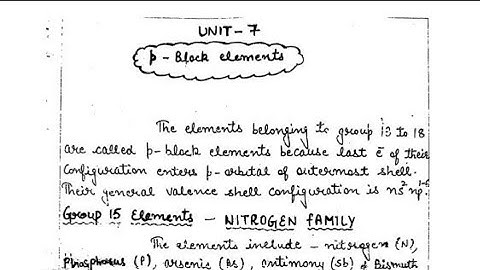 UNIT-7
p-Block elements
The elements belonging to group 13 to 18
are called p-block elements because last ē of their
configuration enters p-orbital of outermost shell.
Their general valence shell configuration is ns² np¹⁻⁶.
Group 15 Elements - NITROGEN FAMILY
The elements include - nitrogen (N),
phosphorus (P), arsenic (As), antimony (Sb) & Bismuth